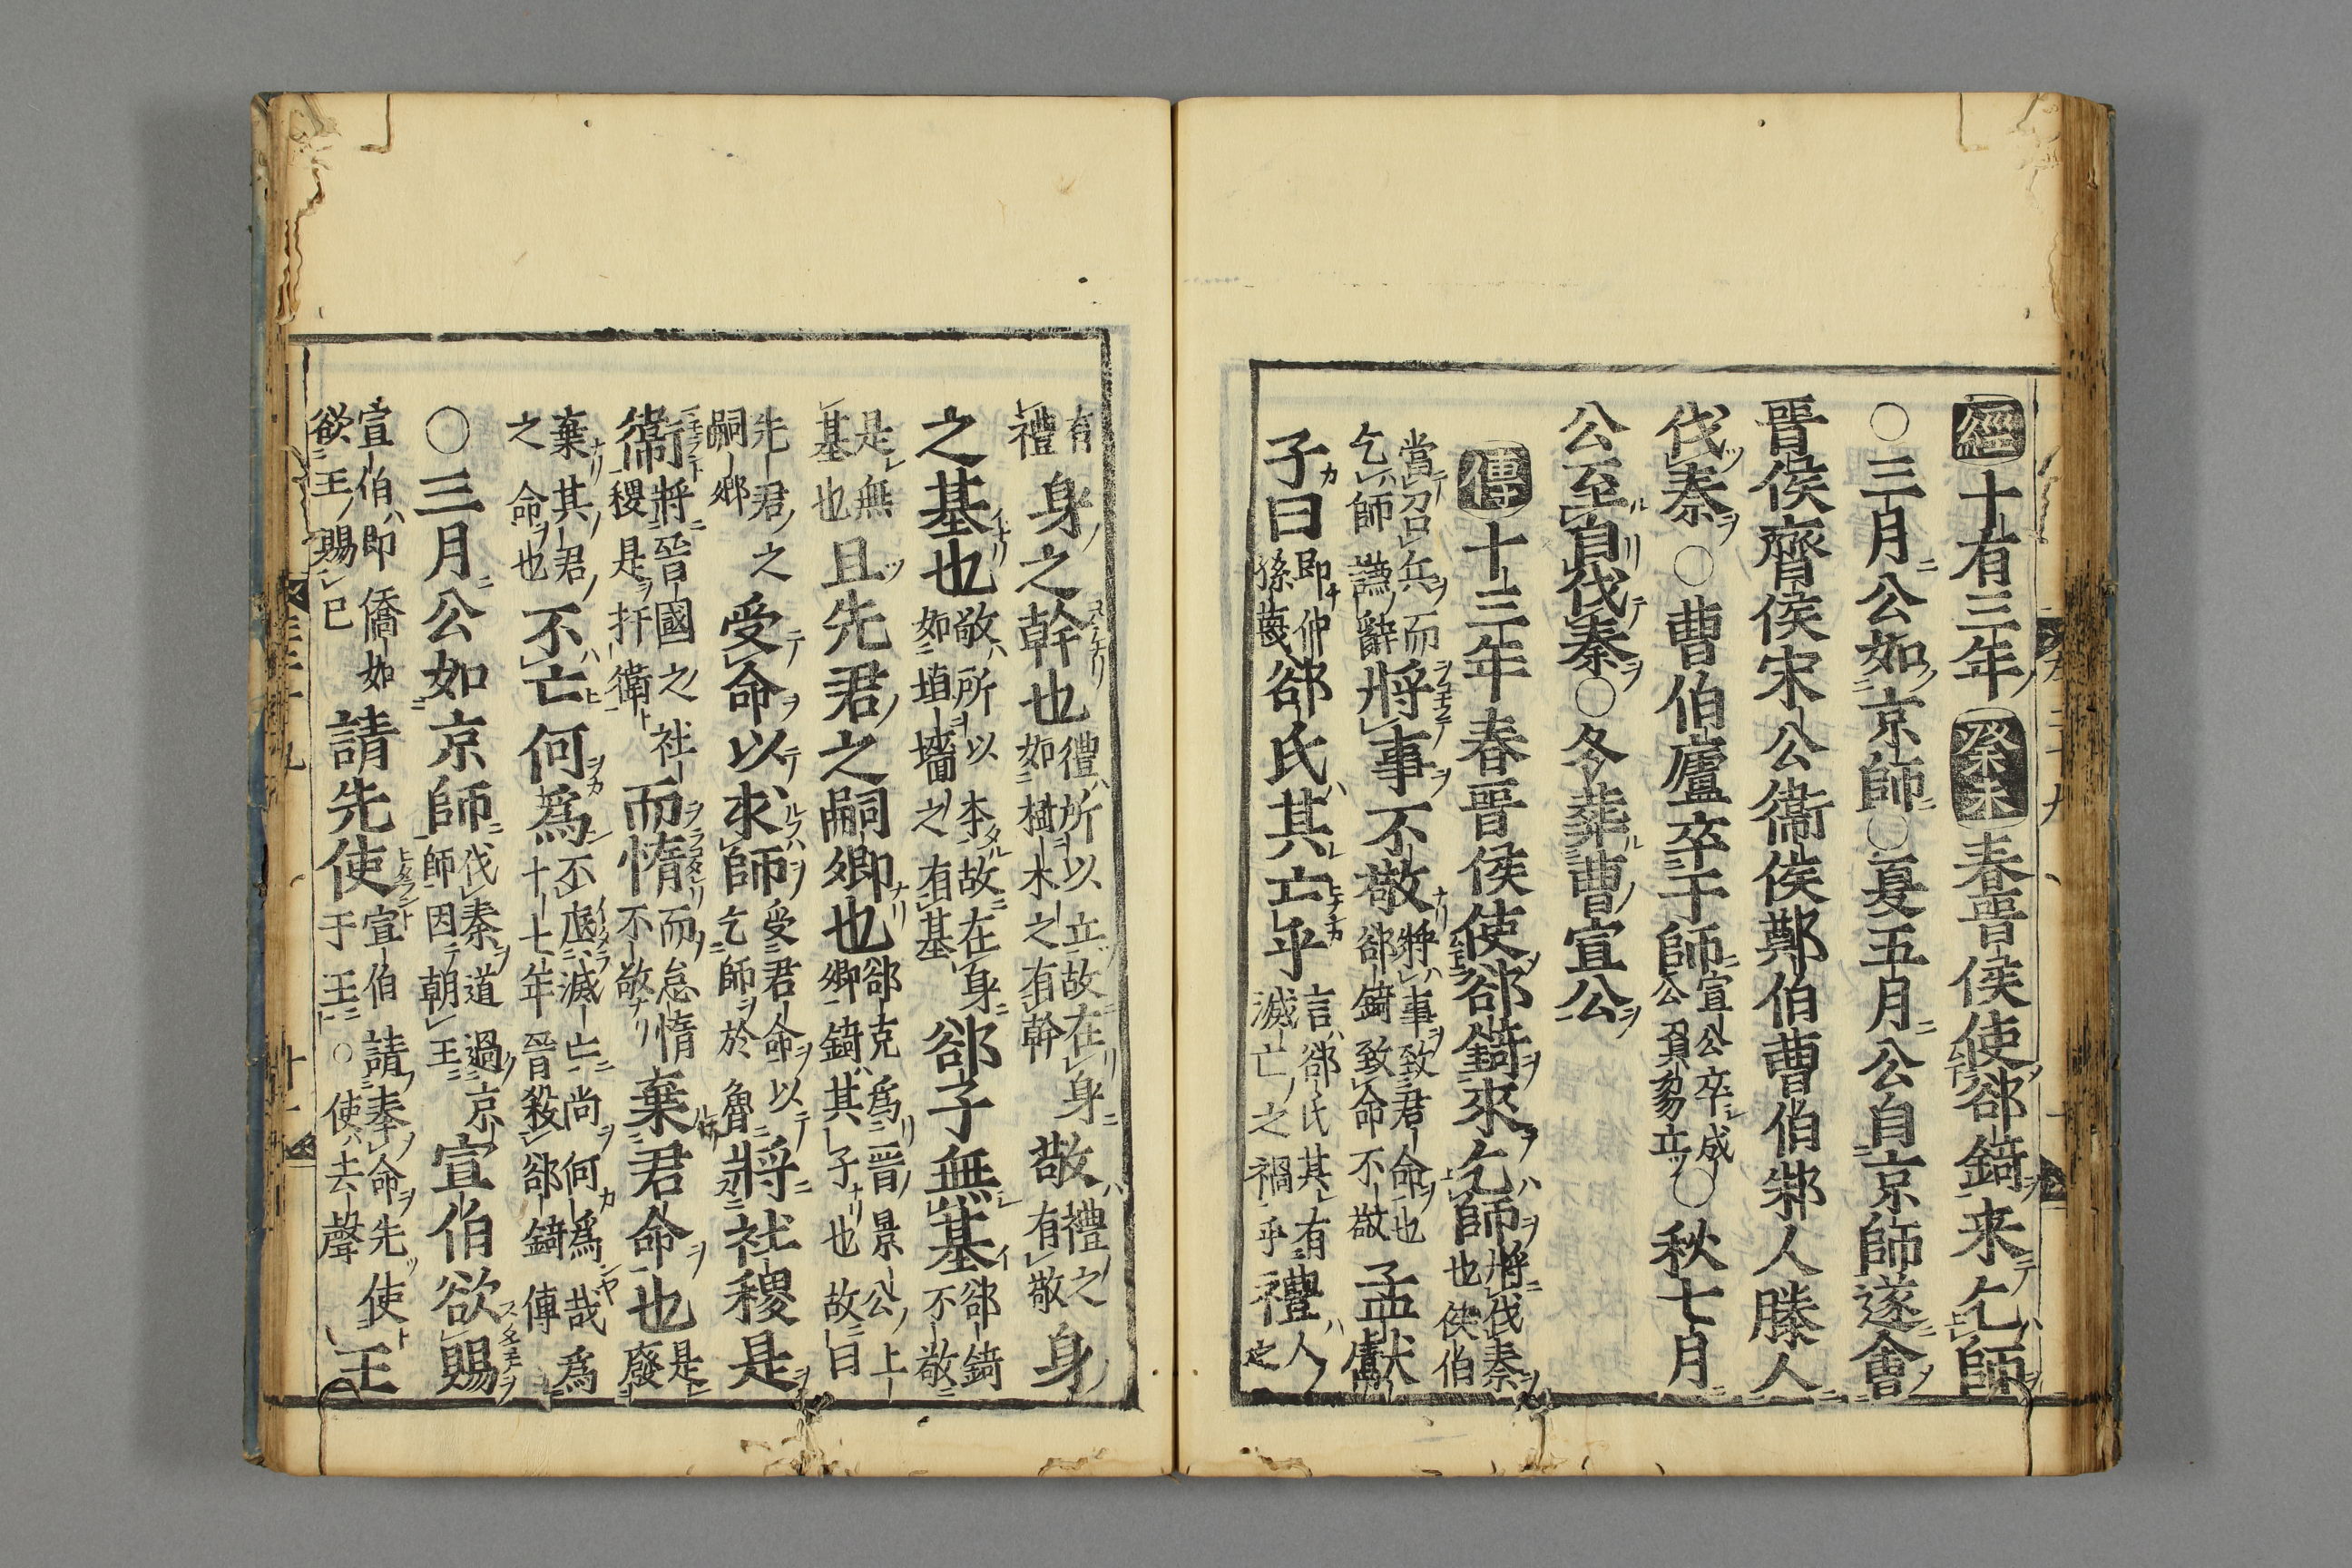 經十有三年癸未春晋侯使郤錡来乞師
〇三月公如京師〇夏五月公自京師遂會
晋侯齊侯宋公衞侯鄭伯曹伯邾人滕人
伐秦〇曹伯廬卒于師宣公卒成公負芻立〇秋七月
公至自伐秦〇冬葬曹宣公
傳十三年春晋侯使郤錡來乞師將伐秦也侯伯
當召兵而乞師謙辭將事不敬將事致君命也郤錡致命不敬孟獻
子曰即仲孫蔑郤氏其亡乎言郤氏其有滅亡之禍乎禮人之
有禮身之幹也禮所以立故在身如樹木之有幹敬禮之有敬身
之基也敬所以本故在身如垣墻之有基郤子無基郤錡不敬
是無基也且先君之嗣卿也郤克爲晋景公上卿錡其子也故曰
先君之嗣卿受命以求師受君命以乞師於魯將社稷是
衞將晉國之社稷是扞衛而惰而怠惰不敬棄君命也是廢
棄其君之命也不亡何爲不亟滅亡尚何爲哉爲十七年晋殺郤錡傳
〇三月公如京師伐秦道過京師因朝王宣伯欲賜
宣伯即僑如欲王賜已請先使宣伯請奉命先使于王〇使去聲王